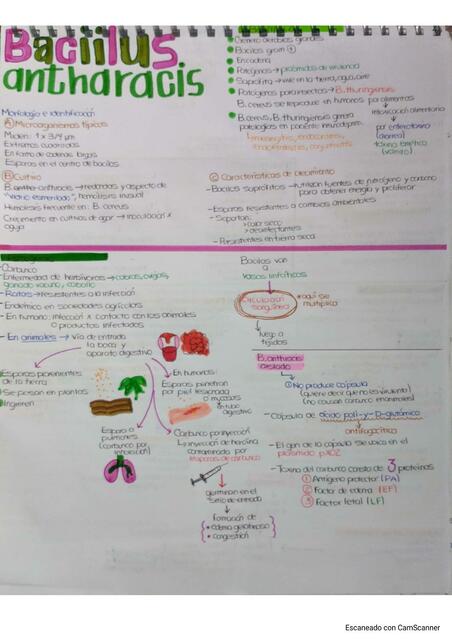 Bacillus
antharacis
Género aerobios grandes
Bacilos gram +
En cadena
Patógenos → plásmidos de virulencia
Saprófita → vive en la tierra, agua, aire
Patógenos para insectos → B. thuringiensis
B. cereus se reproduce en humanos por alimentos
intoxicación alimentaria
por enterotoxina
(diarrea)
tóxina emética
(vómito)
B. cereus, B. thuringiensis genera
patologías en paciente inmunodeprim.
Morfología e identificación
A) Microorganismos típicos
Miden: 1 x 3/4 µm
Extremos cuadrados
En forma de cadenas largas
Esporas en el centro de bacilos
B) Cultivo
B. anthracis → redondas y aspecto de
"vidrio esmerilado", hemólisis inusual
Hemólisis frecuente en: B. cereus
Crecimiento en cultivos de agar → inoculación x
aguja
C) Características de crecimiento
- Bacilos saprófitos → utilizan fuentes de nitrógeno y carbono
para obtener energía y proliferar
- Esporas resistentes a cambios ambientales
- Soportan:
> calor seco
> desinfectantes
- Persistentes en tierra seca
- Carbunco
- Enfermedad de herbívoros → cabras, ovejas,
ganado vacuno, caballo
- Ratas → resistentes a la infección
- Endémico en sociedades agrícolas
- En humano: infección x contacto con los animales
o productos infectados
- En animales → vía de entrada
la boca y
aparato digestivo
Esporas provenientes
de la tierra
Se pasan en plantas
Ingieren
En humanos:
Esporas penetran
por piel lesionada
o mucosas
Espora a
pulmones
(carbunco por
inhalación)
Carbunco por inyección
Inyección de heroína
contaminada por
esporas de carbunco
germinan en el
sitio de entrada
formación de
• edema gelatinoso
• congestión
Bacilos van
a
vasos linfáticos
Circulación
sanguínea
*aquí se
multiplica
luego a
tejidos
B. anthracis
aislado
① No produce cápsula
(quiere decir que no es virulento)
(no causan carbunco en animales)
- Cápsula de ácido poli-γ-D-glutámico
antifagocítica
- El gen de la cápsula se ubica en el
plásmido pXO2
- Toxina del carbunco consta de 3 proteínas
① Antígeno protector (PA)
② Factor de edema (EF)
③ Factor letal (LF)
Escaneado con CamScanner